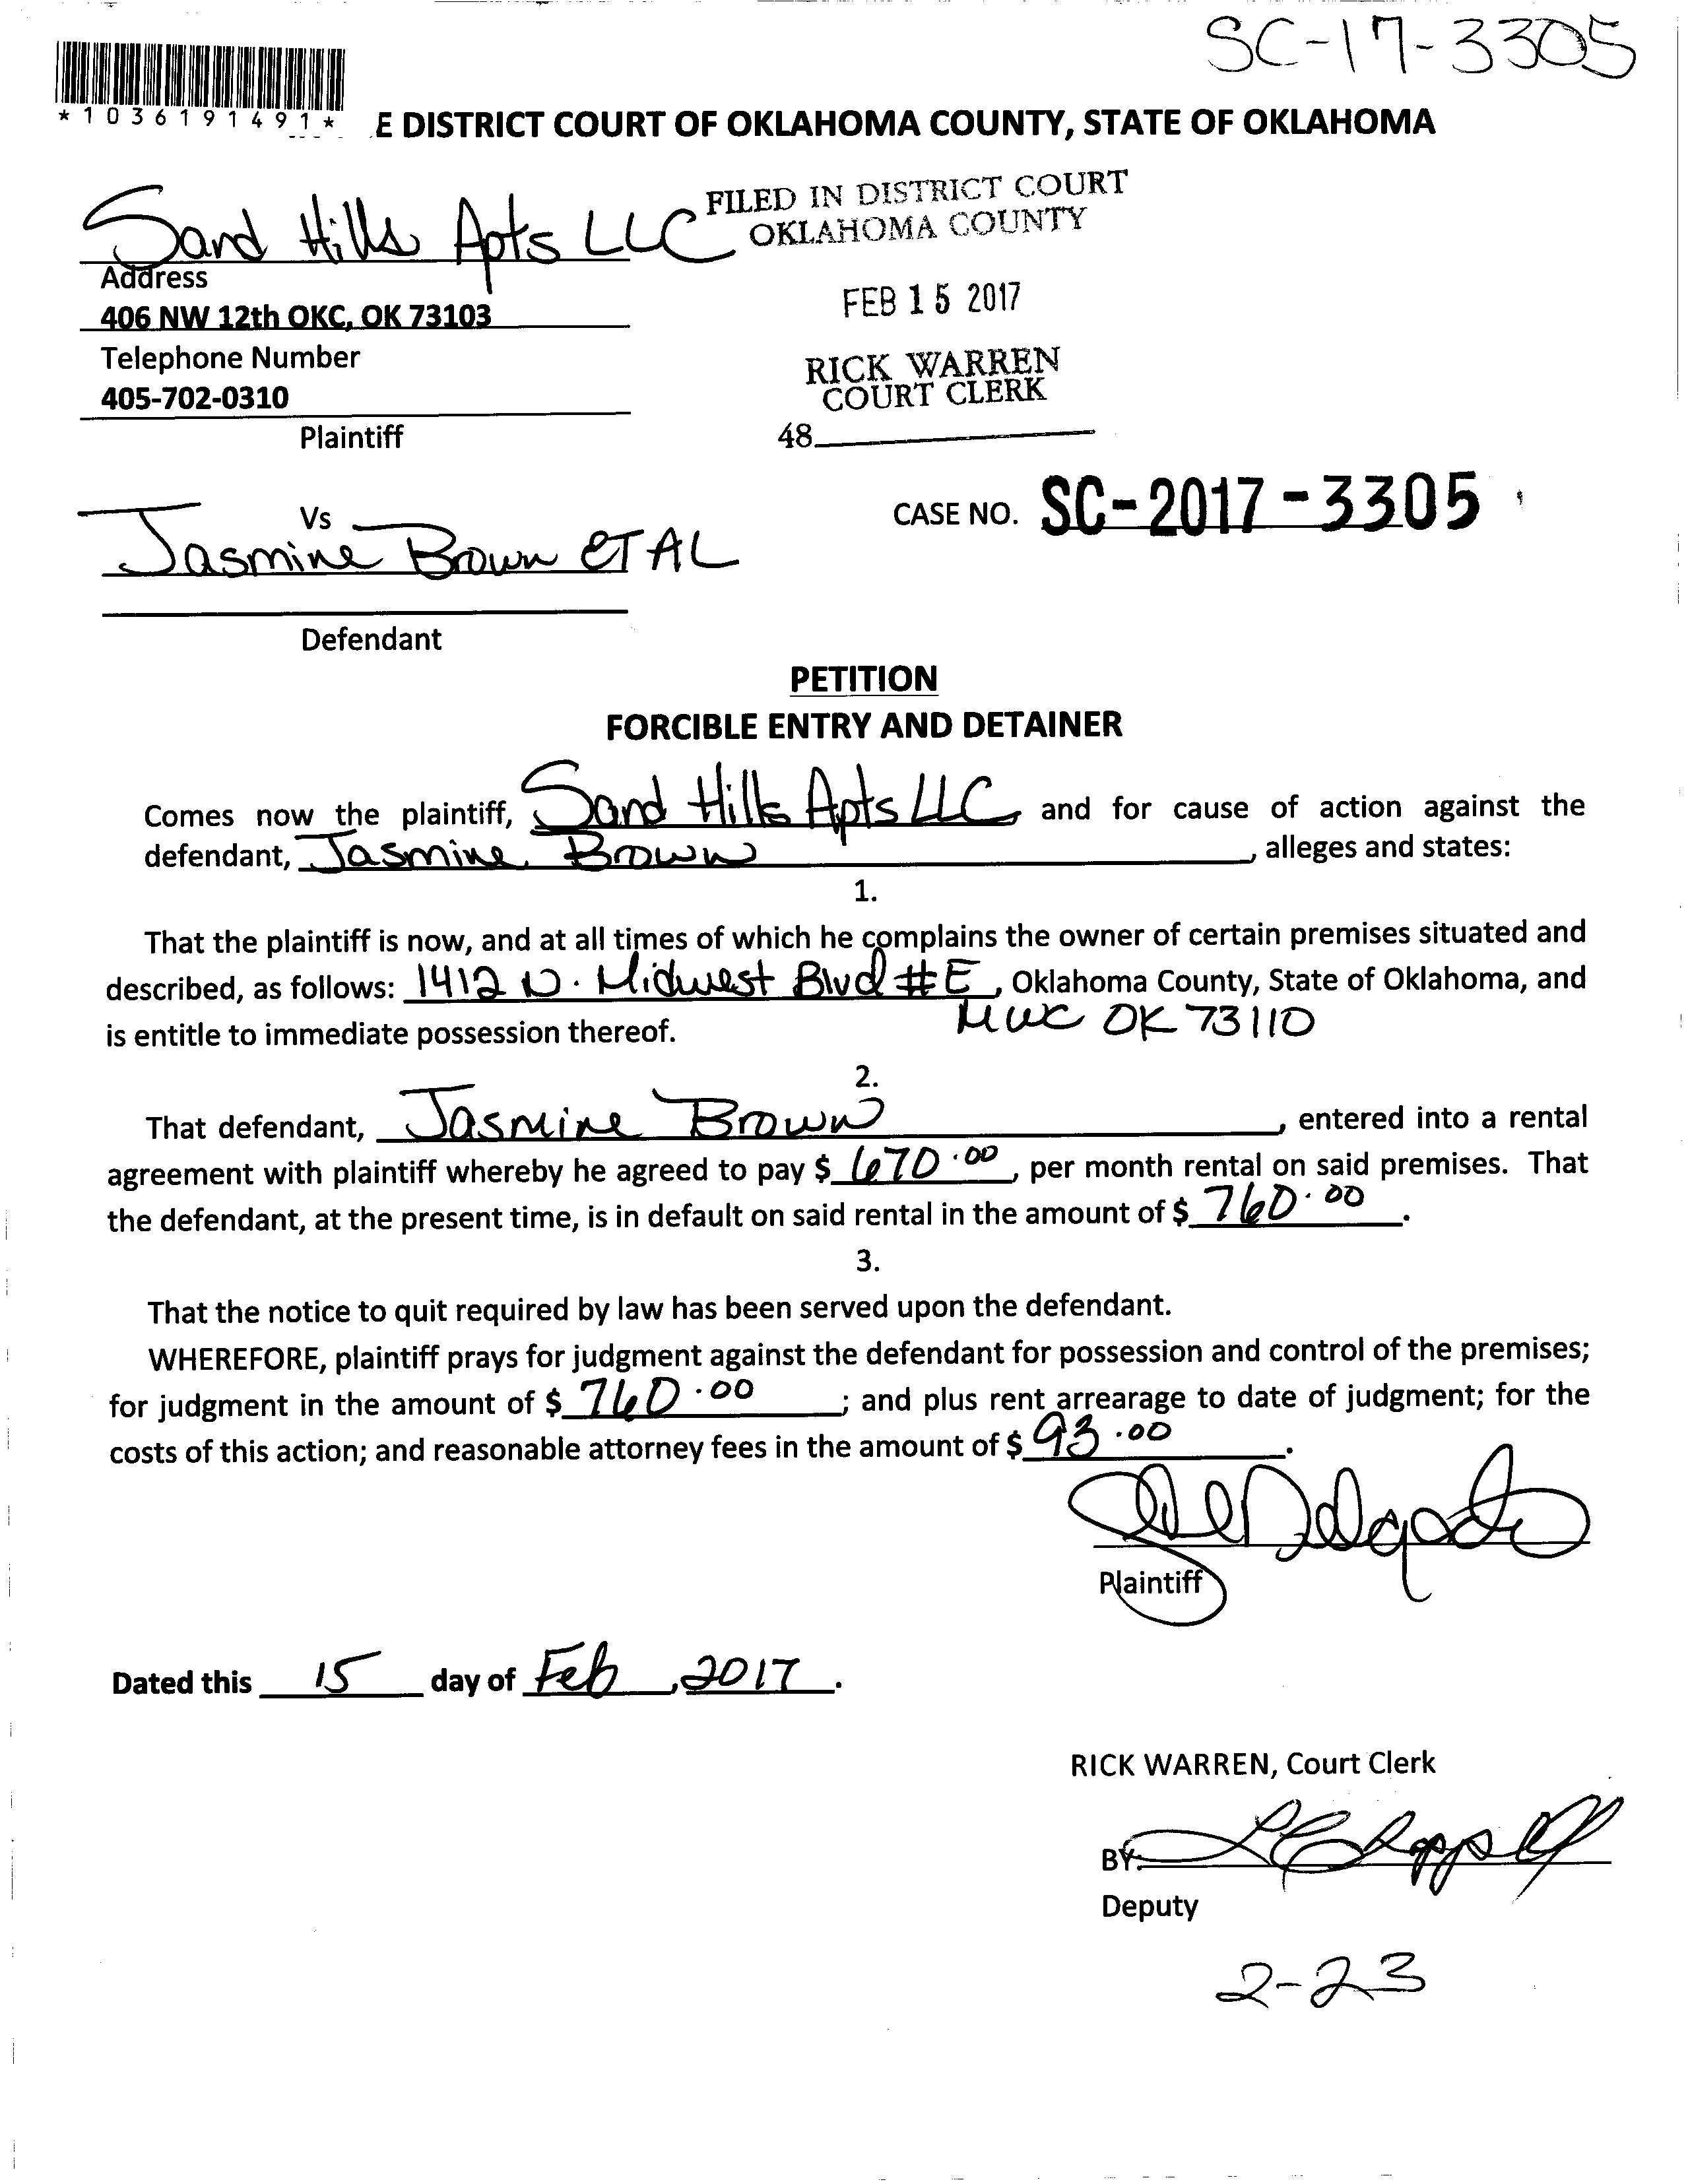 SC-17-3305
*1036191491*
E DISTRICT COURT OF OKLAHOMA COUNTY, STATE OF OKLAHOMA
Sand Hills Apts LLC
FILED IN DISTRICT COURT
OKLAHOMA COUNTY
Address
406 NW 12th OKC, OK 73103
FEB 15 2017
Telephone Number
405-702-0310
RICK WARREN
COURT CLERK
Plaintiff
48
Vs
CASE NO. SC-2017-3305
Jasmine Brown ET AL
Defendant
PETITION
FORCIBLE ENTRY AND DETAINER
Comes now the plaintiff, Sand Hills Apts LLC and for cause of action against the
defendant, Jasmine Brown, alleges and states:
1.
That the plaintiff is now, and at all times of which he complains the owner of certain premises situated and
described, as follows: 1412 N. Midwest Blvd #E, Oklahoma County, State of Oklahoma, and
MWC OK 73110
is entitle to immediate possession thereof.
2.
That defendant, Jasmine Brown, entered into a rental
agreement with plaintiff whereby he agreed to pay $ 670.00, per month rental on said premises. That
the defendant, at the present time, is in default on said rental in the amount of $ 760.00.
3.
That the notice to quit required by law has been served upon the defendant.
WHEREFORE, plaintiff prays for judgment against the defendant for possession and control of the premises;
for judgment in the amount of $ 760.00; and plus rent arrearage to date of judgment; for the
costs of this action; and reasonable attorney fees in the amount of $ 93.00.
Plaintiff
Dated this 15 day of Feb, 2017.
RICK WARREN, Court Clerk
BY:
Deputy
2-23